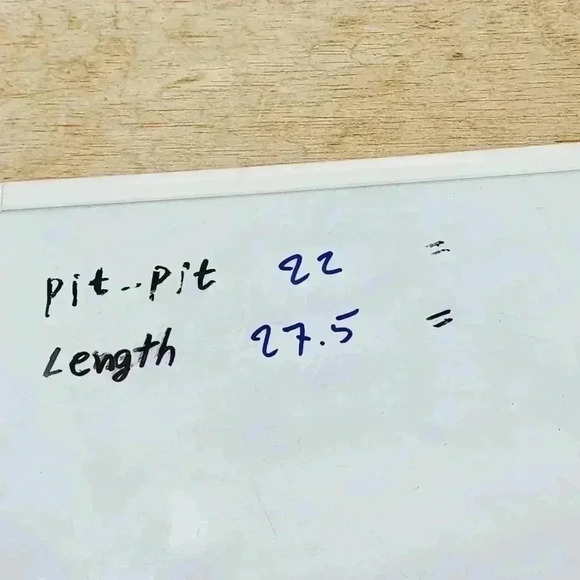 pit--pit 22 =
Length 27.5 =